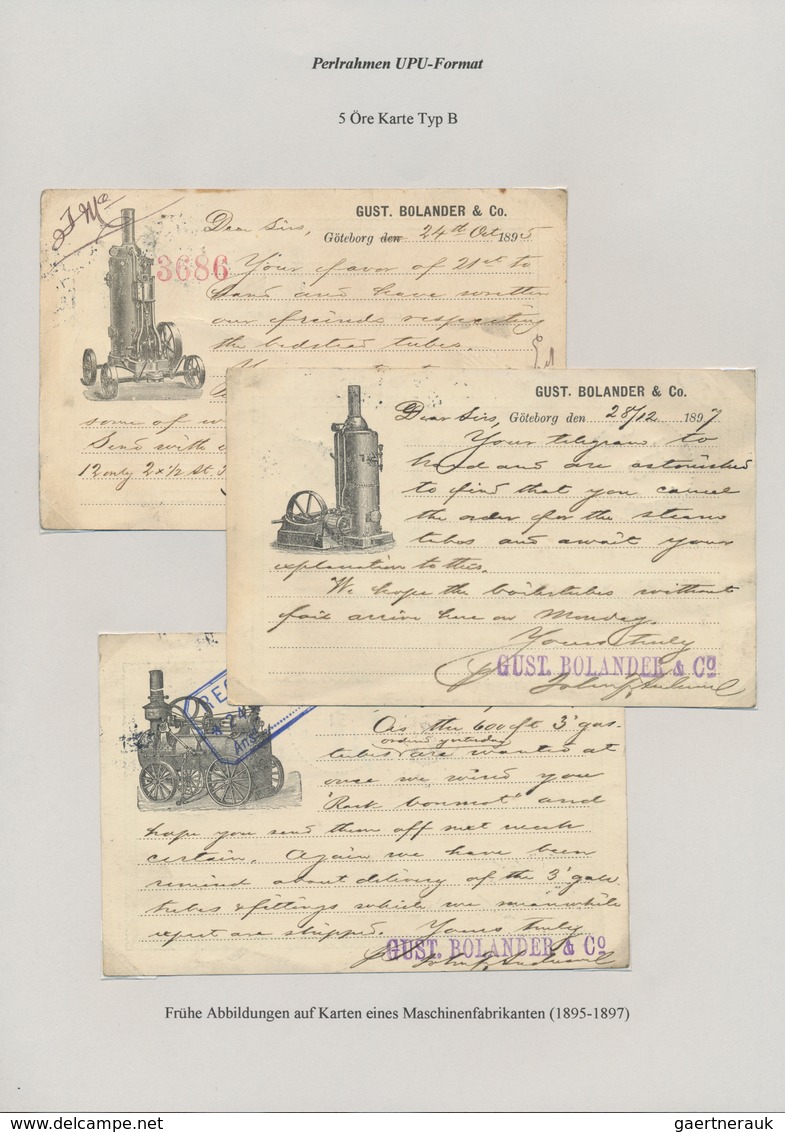 Perlrahmen UPU-Format
5 Öre Karte Typ B
GUST. BOLANDER & Co.
Dear Sirs, Göteborg den 24th Oct 1895
3686 Your favor of 21st to
hand and have written
our friends respecting
the bedstead tubes.
some of
Send with
12 only 2 x 1/2 St.
GUST. BOLANDER & Co.
Dear Sirs, Göteborg den 28/12 1897
Your telegram to
hand and are astonished
to find that you cancel
the order for the steam
tubes and await your
explanation to this.
We hope the boilertubes without
fail arrive here on Monday.
Yours truly
GUST. BOLANDER & Co
As the 600 ft 3" gas-
ordered yesterday
tubes are wanted at
once we wired you
"Rack bonmot" and
hope you send them off next week
certain. Again we have been
remind about delivery of the 3" gas
tubes & fittings which we meanwhile
expect are shipped. Yours truly
GUST. BOLANDER & Co
Frühe Abbildungen auf Karten eines Maschinenfabrikanten (1895-1897)
www.delcampe.net
gaertnerauk